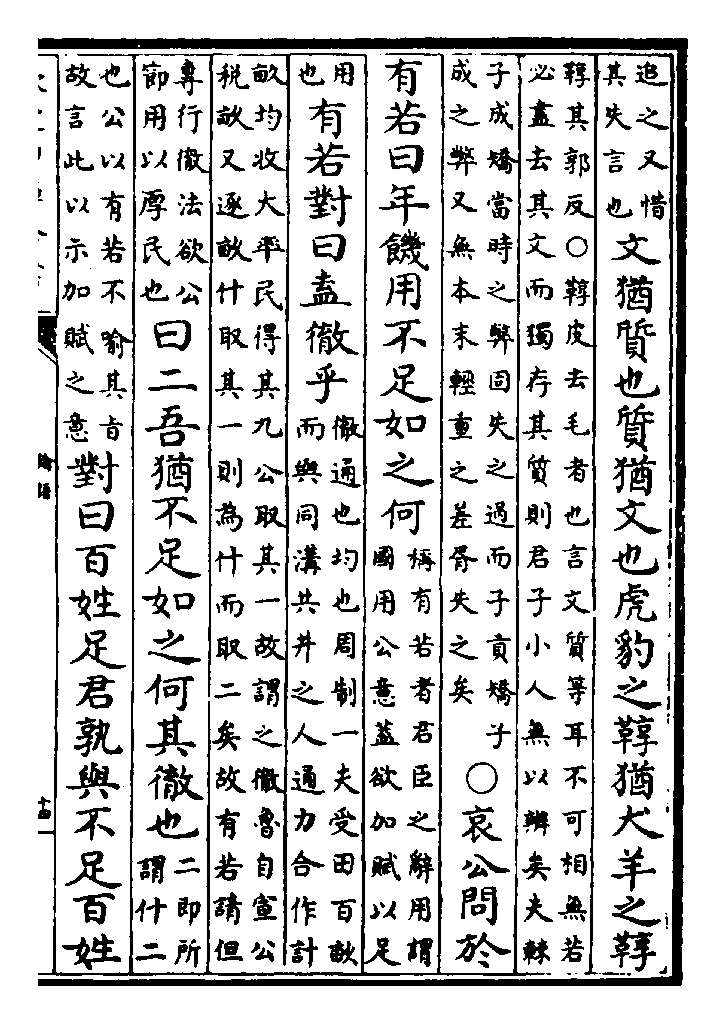 追之又惜其失言也文猶質也質猶文也虎豹之鞟猶犬羊之鞟
鞟其郭反○鞟皮去毛者也言文質等耳不可相無若
必盡去其文而獨存其質則君子小人無以辨矣夫棘
子成矯當時之弊固失之過而子貢矯子成之弊又無本末輕重之差胥失之矣○哀公問於
有若曰年饑用不足如之何稱有若者君臣之辭用謂國用公意蓋欲加賦以足
用也有若對曰盍徹乎徹通也均也周制一夫受田百畝而與同溝共井之人通力合作計
畝均收大率民得其九公取其一故謂之徹魯自宣公
稅畝又逐畝什取其一則為什而取二矣故有若請但
專行徹法欲公節用以厚民也曰二吾猶不足如之何其徹也二即所謂什二
也公以有若不喻其旨故言此以示加賦之意對曰百姓足君孰與不足百姓
論語
十四